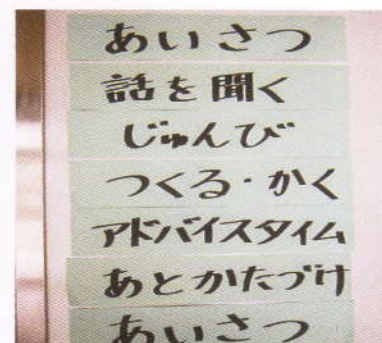 あいさつ
話を聞く
じゅんび
つくる・かく
アドバイスタイム
あとかたづけ
あいさつ